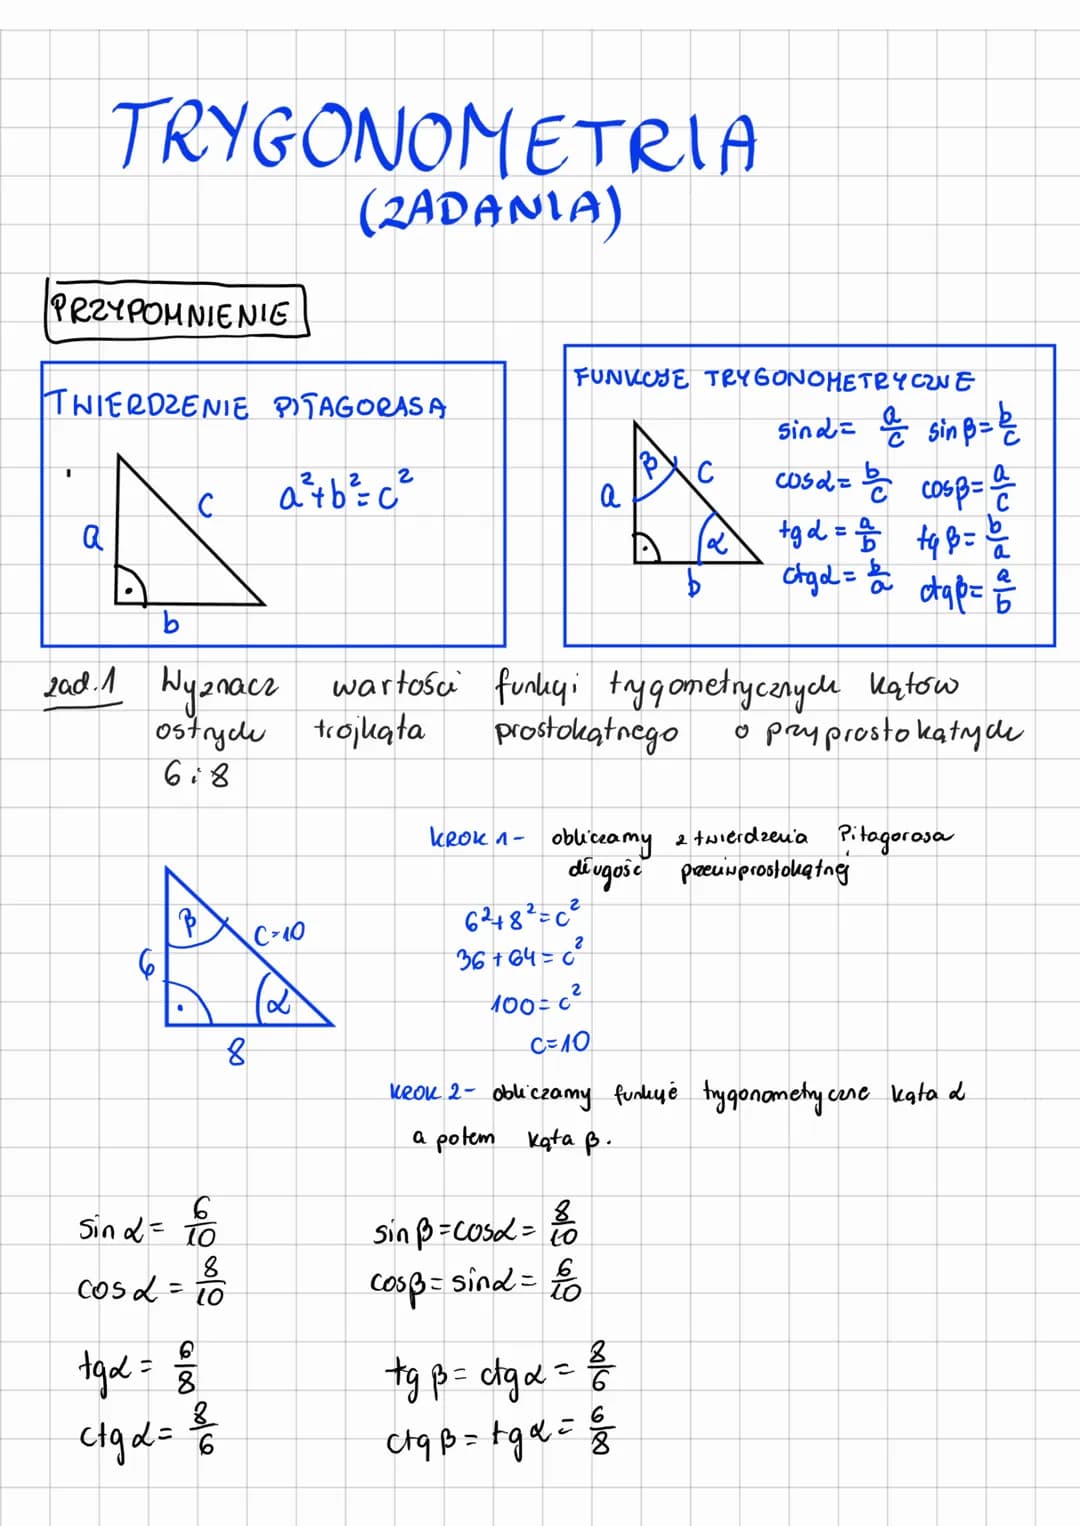 TRYGONOMETRIA
(ZADANIA)
PRZYPOMNIENIE
TWIERDZENIE PITAGORASA
a²+b²=c²
a
c
b
FUNKCJE TRYGONOMETRYCZNE
sinα= a/c sinβ= b/c
cosα= b/c cosβ= a/c
tgα= a/b tgβ= b/a
ctgα= b/a ctgβ= a/b
a
β
c
α
b
zad.1 Wyznacz wartości funkcji trygometrycznych kątów
ostrych trójkąta prostokątnego o przyprostokątnych
6 i 8
KROK 1- obliczamy z twierdzenia Pitagorasa
długość przeciwprostokątnej
6²+8²=c²
36+64=c²
100=c²
c=10
β
c=10
6
α
8
KROK 2- obliczamy funkcje trygonometryczne kąta α
a potem kąta β.
sinα= 6/10 sinβ=cosα= 8/10
cosα= 8/10 cosβ=sinα= 6/10
tgα= 6/8 tgβ=ctgα= 8/6
ctgα= 8/6 ctgβ=tgα= 6/8